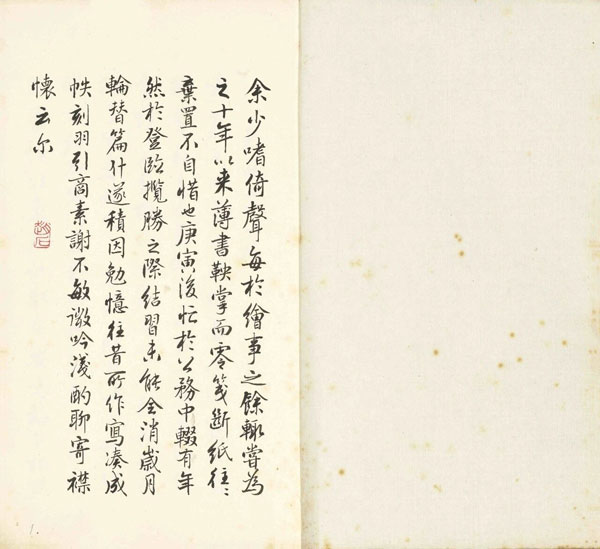 余少嗜倚聲每於繪事之餘輒嘗為
之十年以来薄書鞅掌而零箋斷紙往〻
棄置不自惜也庚寅後忙於公務中輟有年
然於登臨攬勝之際結習未能全消歲月
輪替篇什遂積因勉憶往昔所作寫湊成
帙刻羽引商素謝不敏微吟淺酌聊寄襟
懷云尔